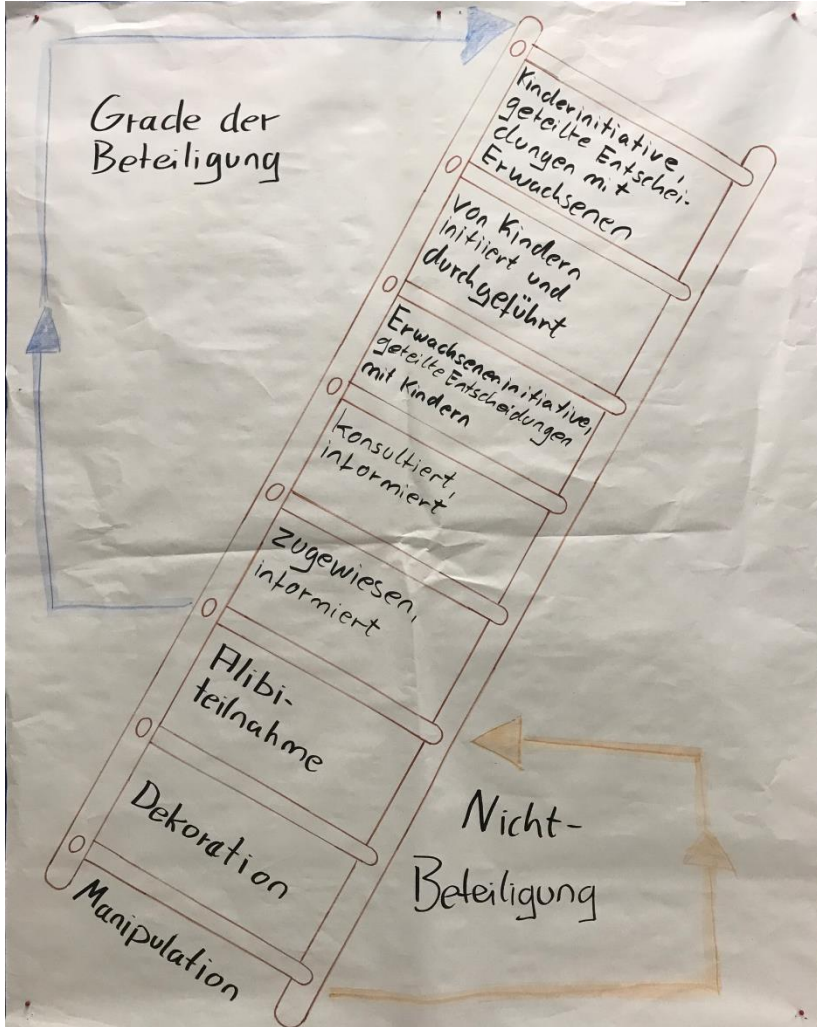 Grade der
Beteiligung
Kinderinitiative,
geteilte Entschei-
dungen mit
Erwachsenen
von Kindern
initiiert und
durchgeführt
Erwachseneninitiative,
geteilte Entscheidungen
mit Kindern
konsultiert,
informiert
zugewiesen,
informiert
Alibi-
teilnahme
Dekoration
Manipulation
Nicht-
Beteiligung